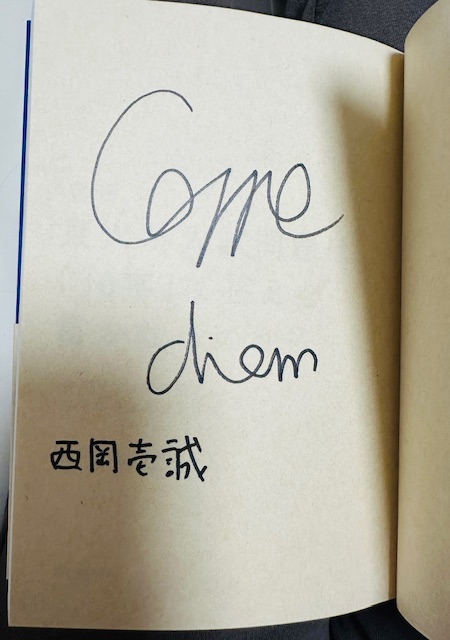 Carpe
diem
西岡壱誠